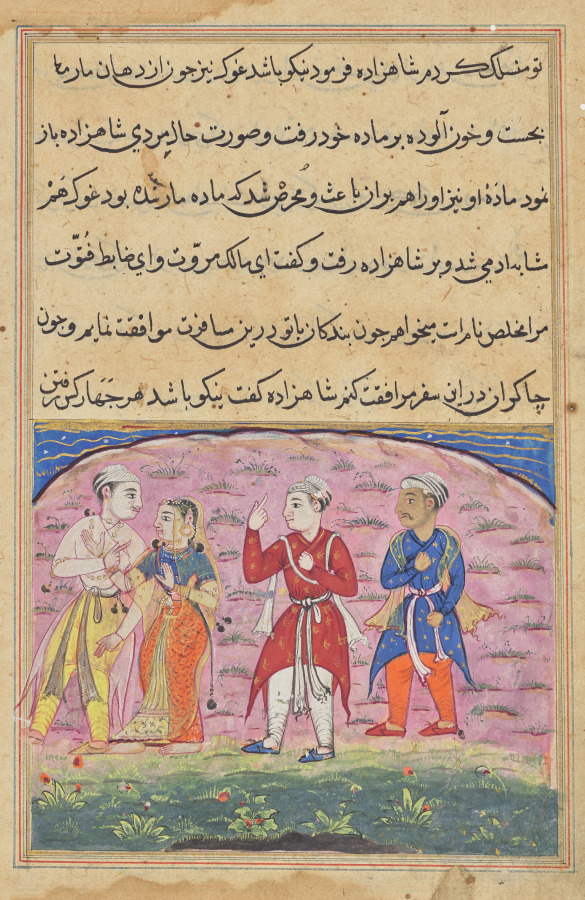 تو منسلک کردم شاهزاده فرمود نیکو باشد غوک نیز چون از دهان مار ما
بجست و خون آلوده بر ماده خود رفت و صورت حال مردی شاهزاده باز
نمود مادۀ او نیز او را هم بران باعث و محرض شد که ماده مار شده بود غوک هم
مشابه ادمی شد و بر شاهزاده رفت و کفت ای مالک مروّت و ای ضابط فتوّت
مرا مخلص نام است میخواهم چون بندکان با تو درین مسافرت موافقت نمایم و چون
چاکران در این سفر مرافقت کنم شاهزاده کفت نیکو باشد هر چهار کس رفتن